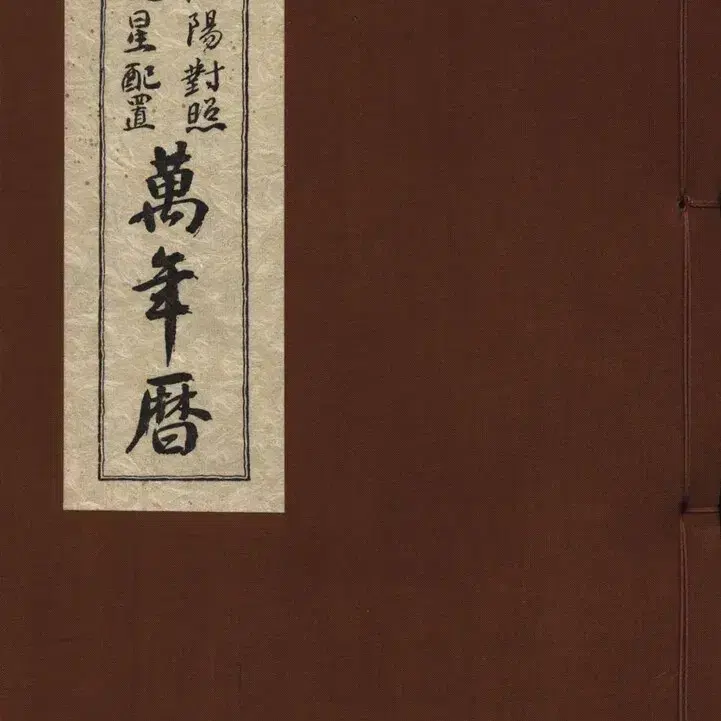 陽對照
星配置
萬年暦